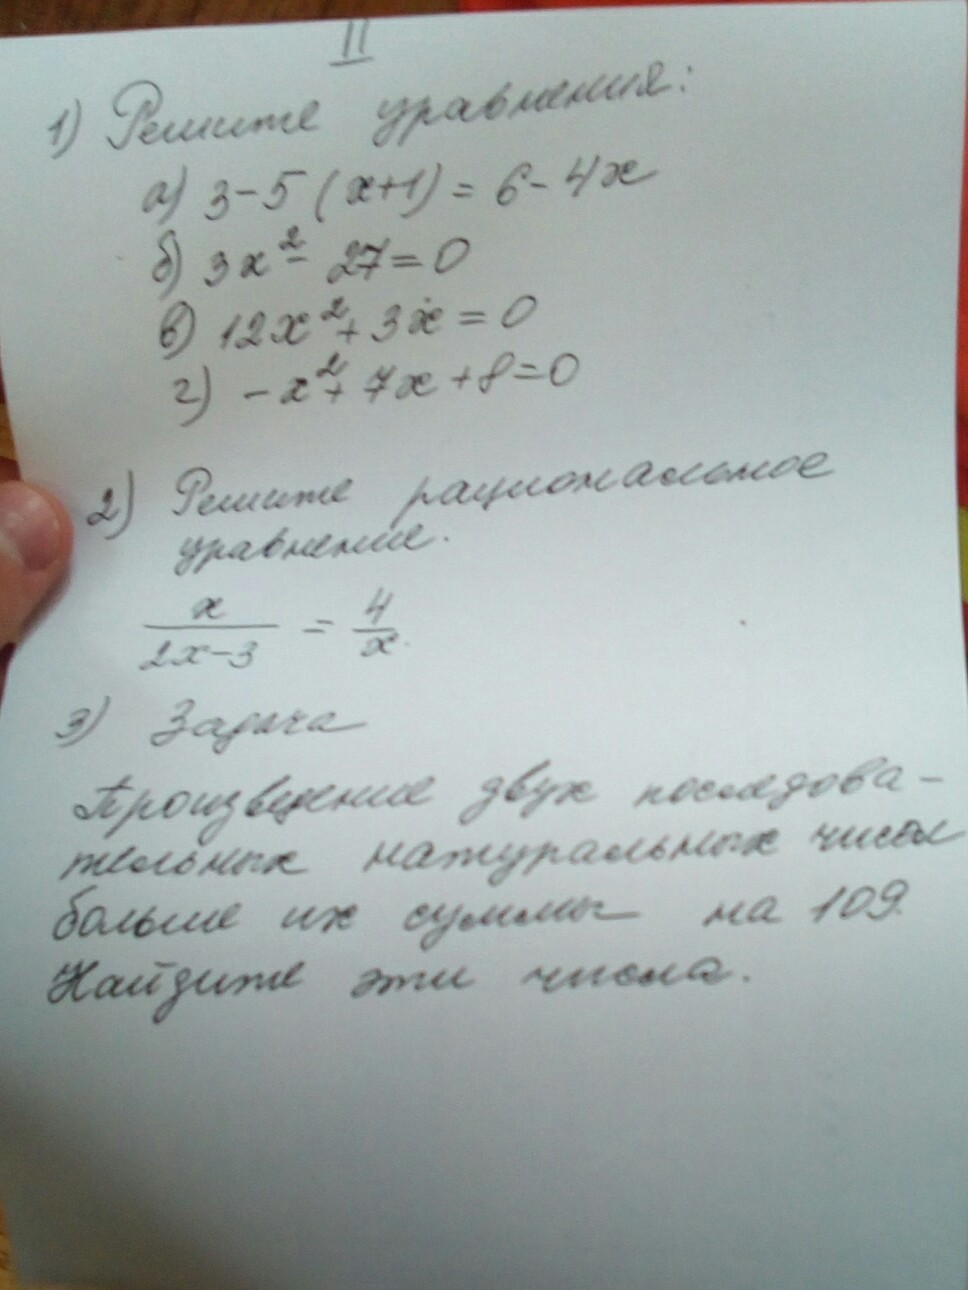 II
1) Решите уравнения:
а) 3-5(x+1)=6-4x
б) 3x²-27=0
в) 12x²+3x=0
г) -x²+7x+8=0
2) Решите рациональное
уравнение.
x/(2x-3) = 4/x.
3) Задача
Произведение двух последова-
тельных натуральных чисел
больше их суммы на 109.
Найдите эти числа.